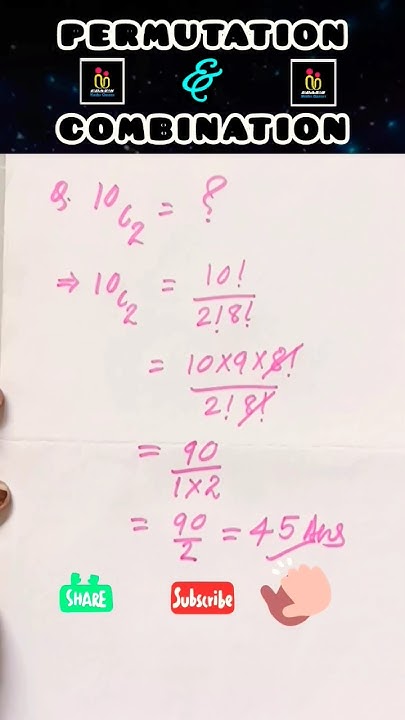 PERMUTATION
&
COMBINATION
Q. 10C2 = ?
⇒ 10C2 = 10! / 2!8!
= 10×9×8! / 2!8!
= 90 / 1×2
= 90 / 2 = 45 Ans
SHARE
Subscribe